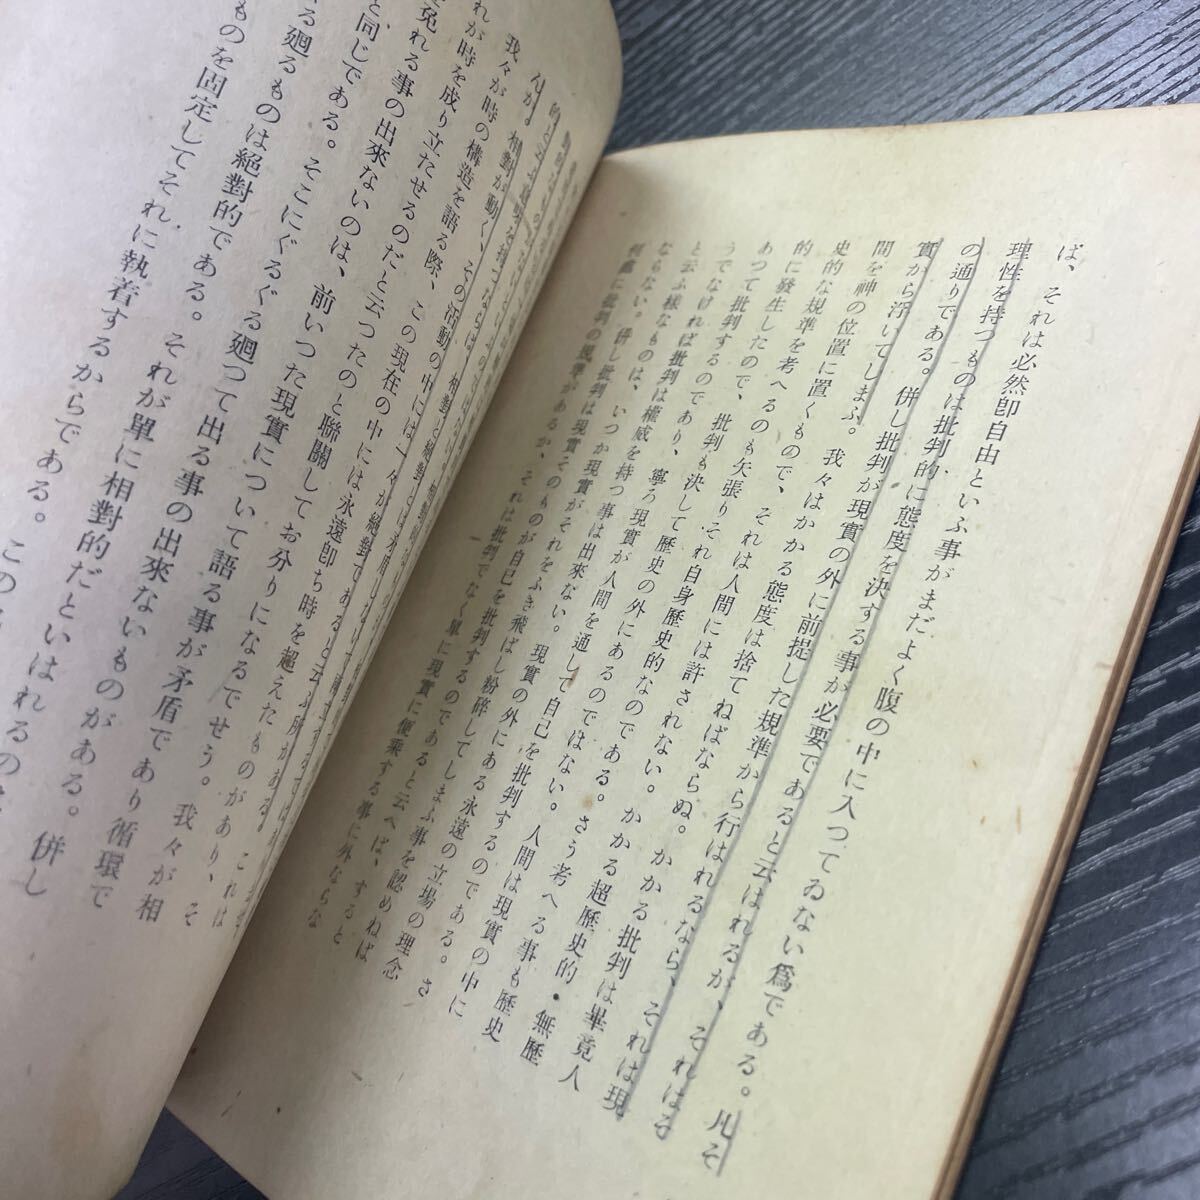 ば、それは必然卽自由といふ事がまだよく腹の中に入つてゐない爲である。凡そ
理性を持つものは批判的に態度を決する事が必要であると云はれるが、それはそ
の通りである。併し批判が現實の外に前提した規準から行はれるなら、それは現
實から浮いてしまふ。我々はかかる態度は捨てねばならぬ。かかる批判は畢竟人
間を神の位置に置くもので、それは人間には許されない。かかる超歷史的・無歷
史的な規準を考へるのも矢張りそれ自身歷史的なのである。さう考へる事も歷史
的に發生したので、批判も決して歷史の外にあるのではない。人間は現實の中に
あつて批判するのであり、寧ろ現實が人間を通して自己を批判するのである。さ
うでなければ批判は權威を持つ事は出來ない。現實の外にある永遠の立場の理念
と云ふ樣なものは、いつか現實がそれをふき飛ばし粉碎してしまふ事を認めねば
ならない。併し批判の規準が現實そのものが自己を批判するのであると云へば、すると
それは批判でなく單に現實に便乘する事に外ならな
んか。相對が動く、その活動の中には一々が絕對であると云ふ所がある。これは
我々が時の構造を語る際、この現在の中には永遠卽ち時を超えたものがあり、そ
れが時を成り立たせるのだと云つたのと聯關してお分りになるでせう。我々が相
免れる事の出來ないのは、前いつた現實について語る事が矛盾であり循環で
と同じである。そこにぐるぐる廻つて出る事の出來ないものがある。併し
る廻るものは絕對的である。それが單に相對的だといはれるの
ものを固定してそれに執着するからである。この